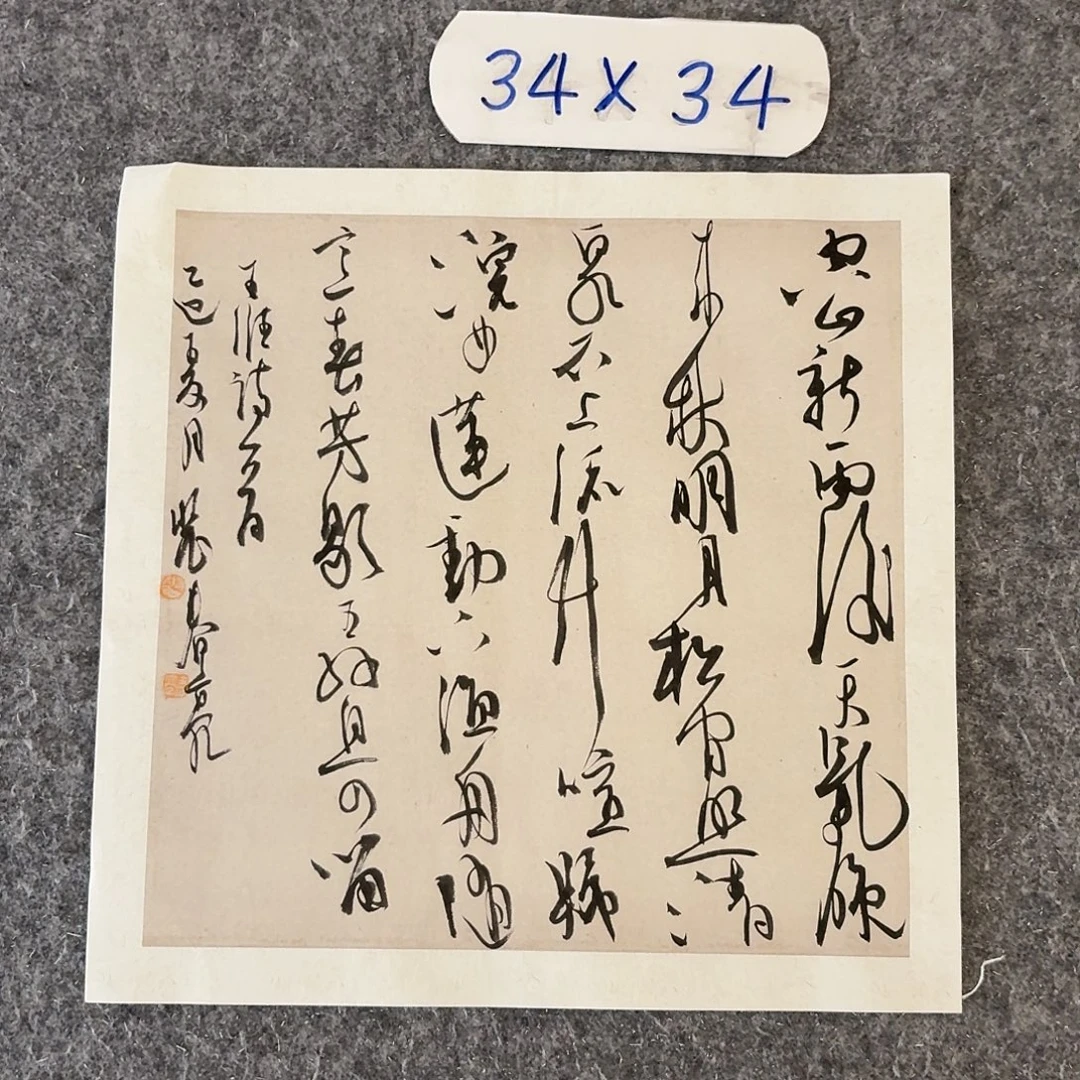 34×34
空山新雨後天氣晚
來秋明月松間照清
泉石上流竹喧歸
浣女蓮動下漁舟隨
意春芳歇王孫且可留
王維詩一首
乙巳夏月